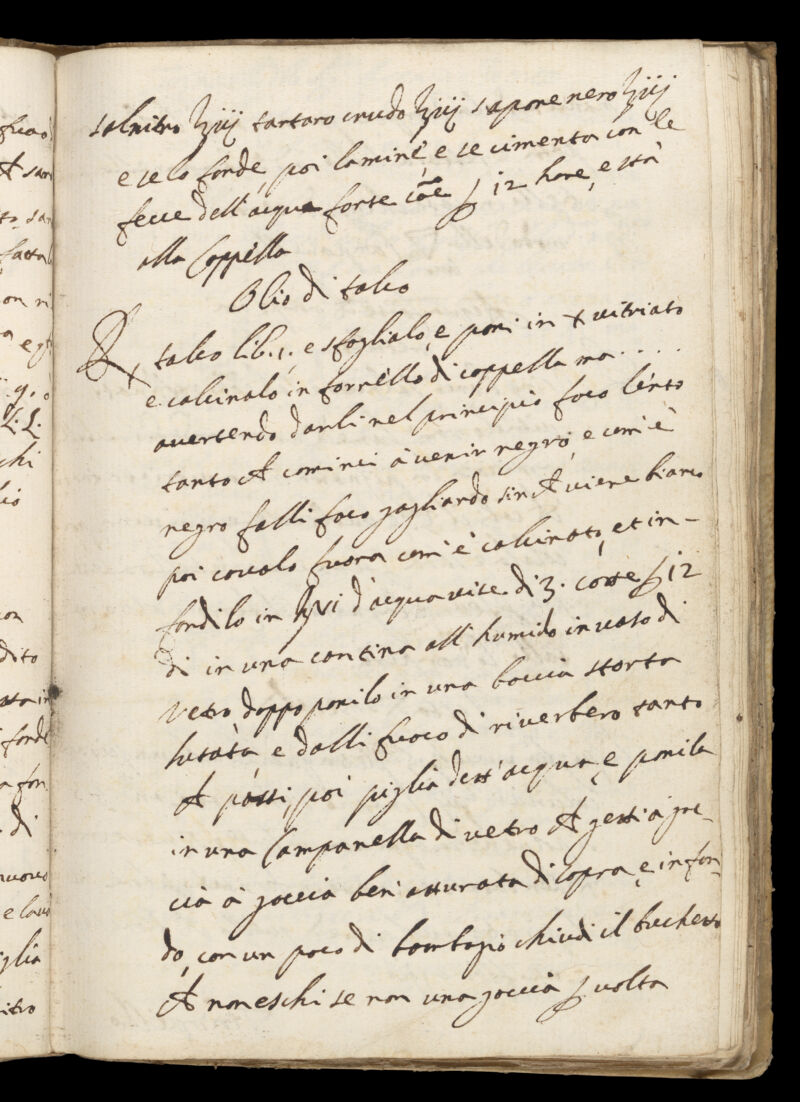 salnitro ℥iiij tartaro crudo ℥iiij sapone nero ℥iiij
e se lo fonde, poi lamine, e se cimenta con le
fecce dell'acqua forte cõe ꝑ 12 hore, e stà
alla Coppella
Olio di talco
℞ talco lib. 1. e sfoglialo, e poni in + vitriato
e calcinalo in fornello di coppella ma....
avertendo darli nel principio foco lento
tanto che cominci à venir negro, e com'è
negro falli foco gagliardo sin che viene bianco
poi cavalo fuora com'è calcinato, et in-
fondilo in ℥vi d'acquavite di 3. cotte ꝑ 12
dì in una cantina all'humido in vaso di
vetro, doppo ponilo in una boccia storta
lutata e dalli fuoco di riverbero tanto
che passi, poi piglia dett'acqua, e ponila
in una Campanella di vetro che getti à goc-
cia à goccia ben atturata di sopra, e in fon-
do, con un poco di bombagio chiudi il buchetto
che non eschi se non una goccia ꝑ volta
fuoco
che
fatta
con
g.
chi
con
dito
fonde
di
nuovo
e
glia
nitro